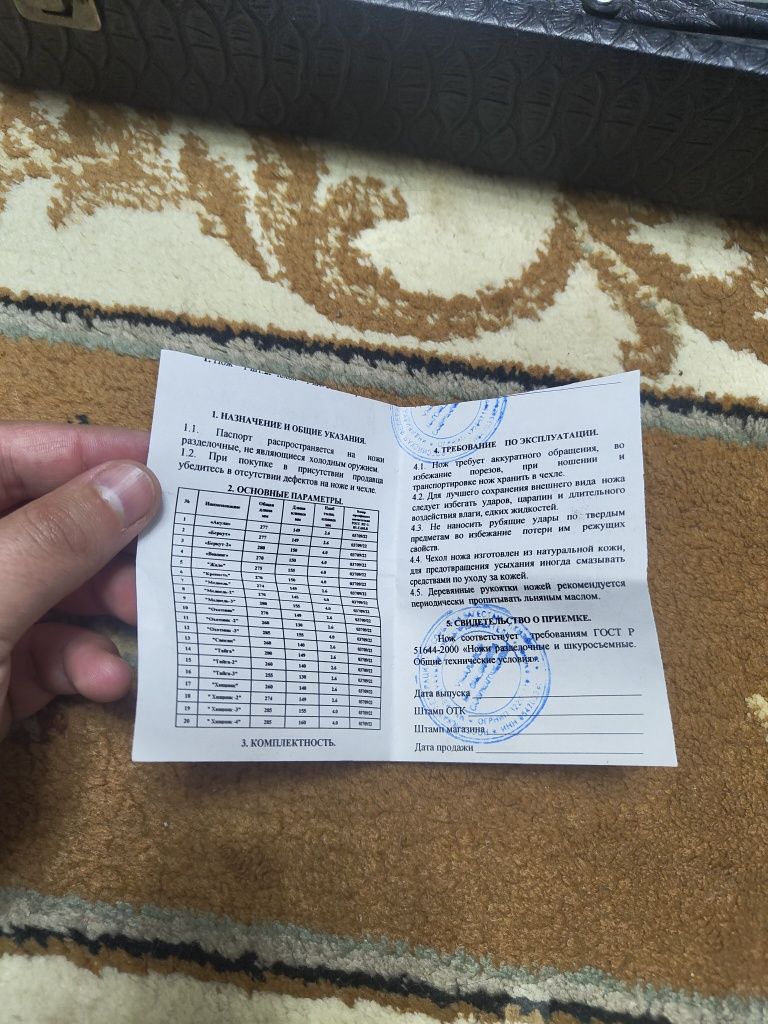 1. НАЗНАЧЕНИЕ И ОБЩИЕ УКАЗАНИЯ.
1.1. Паспорт распространяется на ножи
разделочные, не являющиеся холодным оружием.
1.2. При покупке в присутствии продавца
убедитесь в отсутствии дефектов на ноже и чехле.
2. ОСНОВНЫЕ ПАРАМЕТРЫ.
№ Наименование Общая длина мм Длина клинка мм
1 «Акула» 277 149 2.6 03709/22
2 «Беркут» 277 149 2.6 03709/22
3 «Беркут-2» 280 150 4.0 03709/22
4 «Викинг» 270 150 4.0 03709/22
5 "Жало" 275 155 4.0 03709/22
6 "Крепость" 03709/22
7 "Медведь" 03709/22
8 "Медведь-2" 03709/22
9 "Медведь-3" 03709/22
10 "Охотник" 03709/22
11 "Охотник -2" 260 140 2.6 03709/22
12 "Охотник -3" 285 155 4.0 03709/22
13 260 140 4.0 03709/22
14 "Тайга" 280 149 2.6 03709/22
15 "Тайга-2" 260 140 2.6 03709/22
16 "Тайга-3" 255 130 2.6 03709/22
17 "Хищник" 260 140 2.6 03709/22
18 "Хищник -2" 274 149 2.6 03709/22
19 "Хищник -3" 285 155 4.0 03709/22
20 "Хищник -4" 285 160 4.0 03709/22
3. КОМПЛЕКТНОСТЬ.
4. ТРЕБОВАНИЕ ПО ЭКСПЛУАТАЦИИ.
4.1 Нож требует аккуратного обращения, во
избежание порезов, при ношении и
транспортировке нож хранить в чехле.
4.2. Для лучшего сохранения внешнего вида ножа
следует избегать ударов, царапин и длительного
воздействия влаги, едких жидкостей.
4.3. Не наносить рубящие удары по твердым
предметам во избежание потери им режущих
свойств.
4.4. Чехол ножа изготовлен из натуральной кожи,
для предотвращения усыхания иногда смазывать
средствами по уходу за кожей.
4.5. Деревянные рукоятки ножей рекомендуется
периодически пропитывать льняным маслом.
5. СВИДЕТЕЛЬСТВО О ПРИЕМКЕ.
Нож соответствует требованиям ГОСТ Р
51644-2000 «Ножи разделочные и шкуросъемные.
Общие технические условия».
Дата выпуска
Штамп ОТК
Штамп магазина
Дата продажи